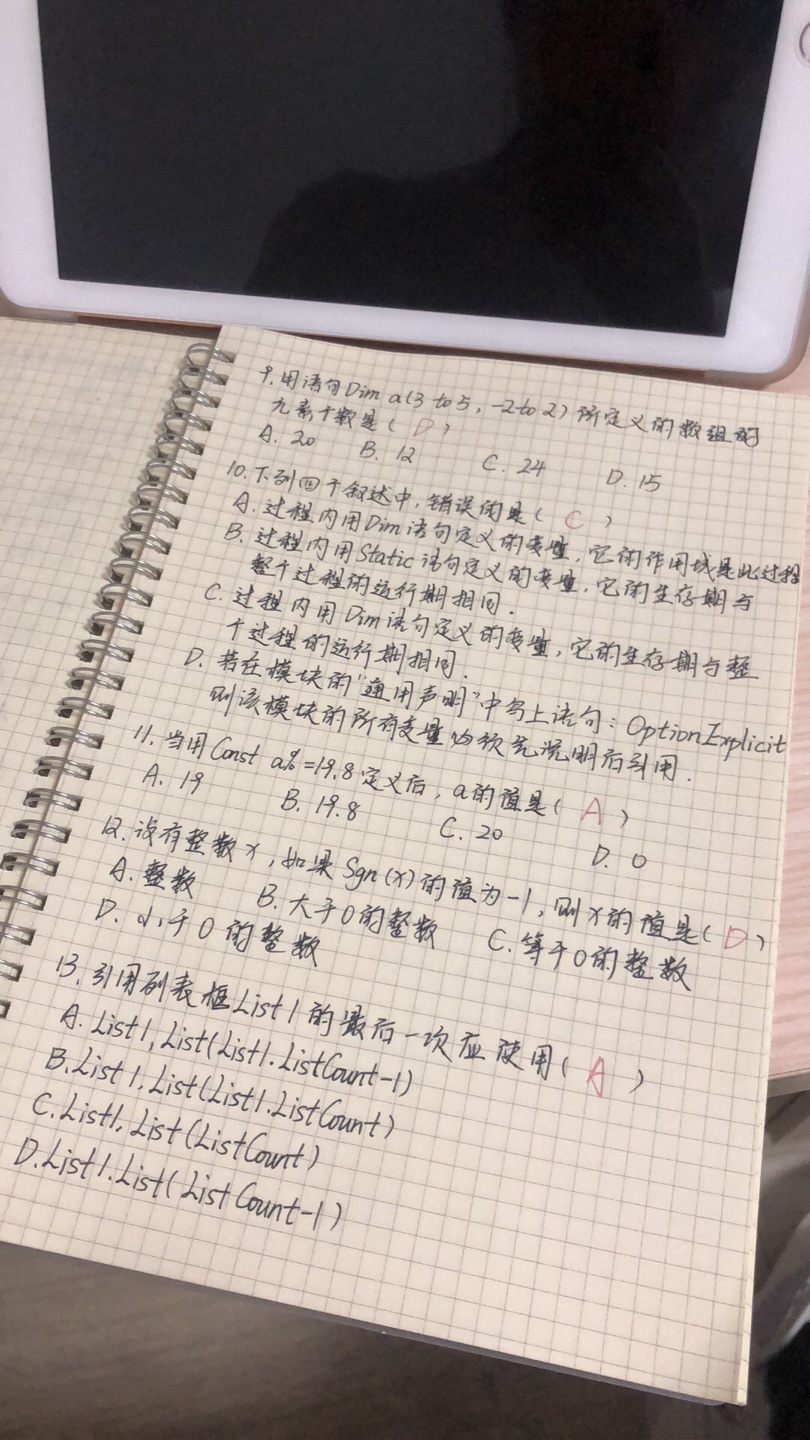 9.用语句Dim a(3 to 5, -2 to 2)所定义的数组的
元素个数是( D )
A. 20 B. 12 C. 24 D. 15
10.下列四个叙述中,错误的是( C )
A. 过程内用Dim语句定义的变量,它的作用域是此过程
B. 过程内用Static语句定义的变量,它的生存期与
整个过程的运行期相同.
C. 过程内用Dim语句定义的变量,它的生存期与整
个过程的运行期相同.
D. 若在模块的“通用声明”中写上语句:OptionExplicit
则该模块的所有变量必须先说明后引用.
11.当用Const a%=19.8定义后,a的值是( A )
A. 19 B. 19.8 C. 20 D. 0
12.设有整数x,如果Sgn(x)的值为-1,则x的值是( D )
A. 整数 B. 大于0的整数 C. 等于0的整数
D. 小于0的整数
13.引用列表框List1的最后一次应使用( A )
A. List1,List(List1.ListCount-1)
B.List1.List(List1.ListCount)
C.List1,List(ListCount)
D.List1.List(ListCount-1)